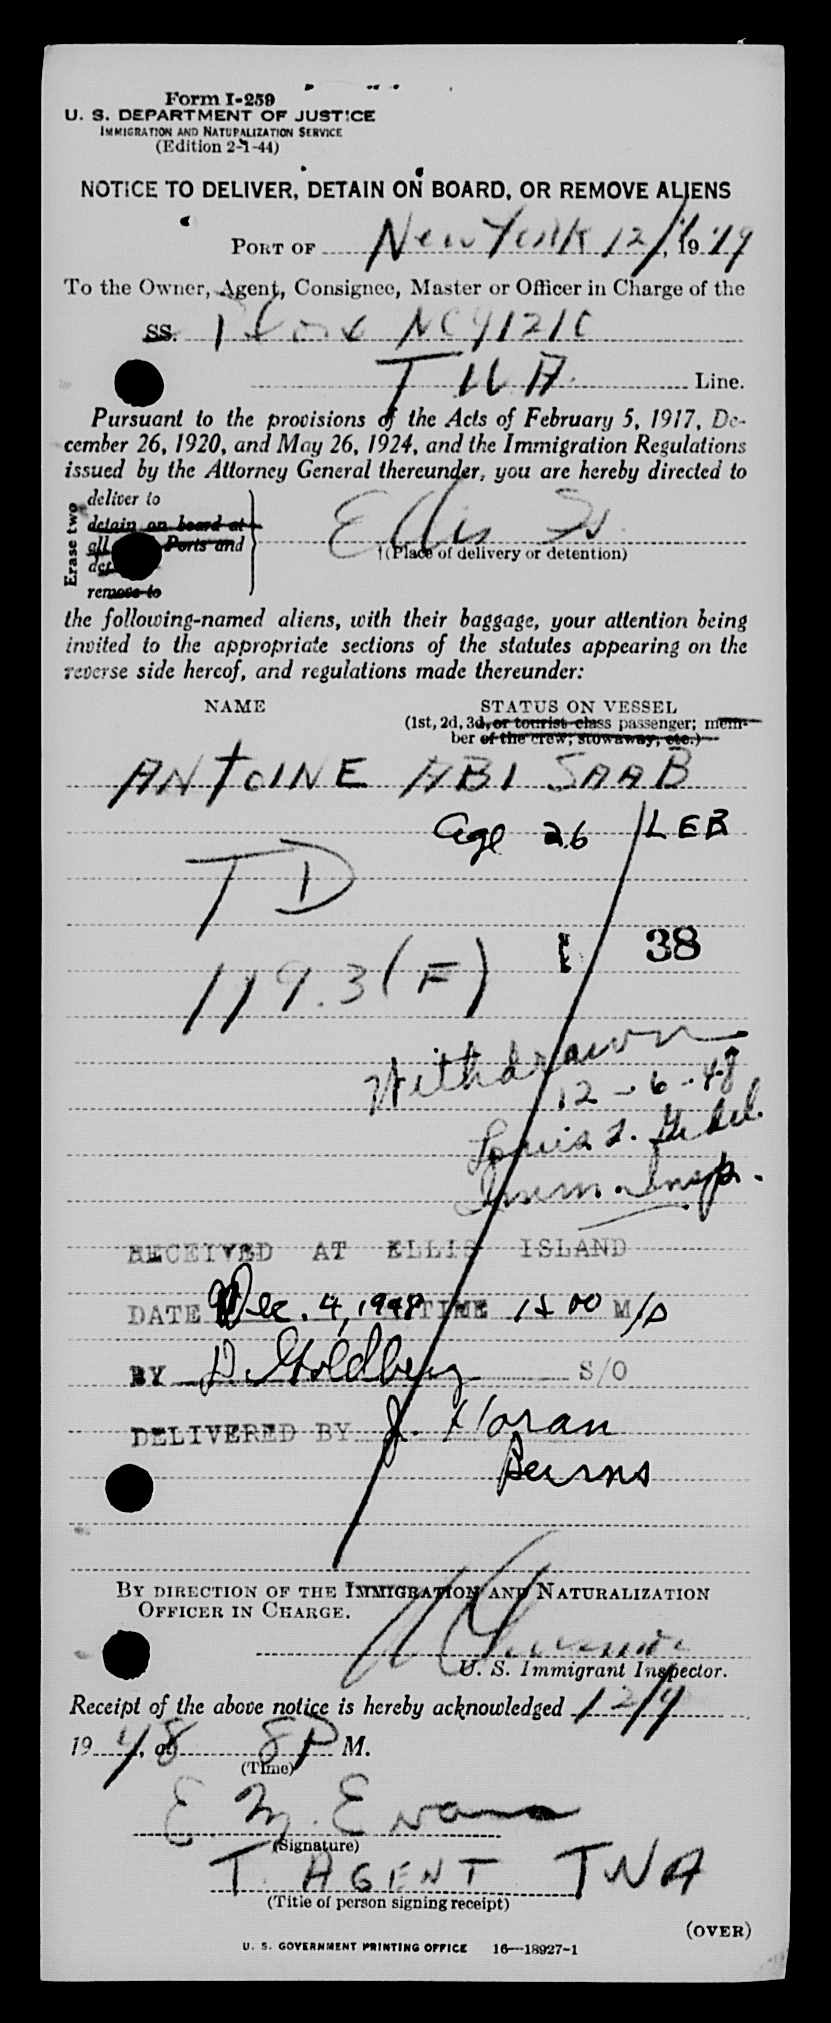 Form I-259
U. S. DEPARTMENT OF JUSTICE
IMMIGRATION AND NATURALIZATION SERVICE
(Edition 2-1-44)
NOTICE TO DELIVER, DETAIN ON BOARD, OR REMOVE ALIENS
PORT OF New York 12/4, 19
To the Owner, Agent, Consignee, Master or Officer in Charge of the
SS. NC 91210
TWA Line.
Pursuant to the provisions of the Acts of February 5, 1917, De-
cember 26, 1920, and May 26, 1924, and the Immigration Regulations
issued by the Attorney General thereunder, you are hereby directed to
Erase two
deliver to
detain on board at
all Ports and
det
remove to
Ellis Is.
(Place of delivery or detention)
the following-named aliens, with their baggage, your attention being
invited to the appropriate sections of the statutes appearing on the
reverse side hereof, and regulations made thereunder:
NAME STATUS ON VESSEL
(1st, 2d, 3d, or tourist class passenger; mem-
ber of the crew; stowaway, etc.)
ANTOINE ABI SAAB
Age 26 / LEB
TD
38
119.3 (F)
Withdrawn
12-6-48
Louis
Imm. Insp.
RECEIVED AT ELLIS ISLAND
DATE Dec. 4, 1948 TIME 12 00 M/D
BY D. Goldberg S/O
DELIVERED BY J. Horan
Burns
BY DIRECTION OF THE IMMIGRATION AND NATURALIZATION
OFFICER IN CHARGE.
U. S. Immigrant Inspector.
Receipt of the above notice is hereby acknowledged 12/4
19 48, at 8 P M.
(Time)
E. M. Evans
(Signature)
T. AGENT TWA
(Title of person signing receipt)
(OVER)
U. S. GOVERNMENT PRINTING OFFICE 16—18927-1